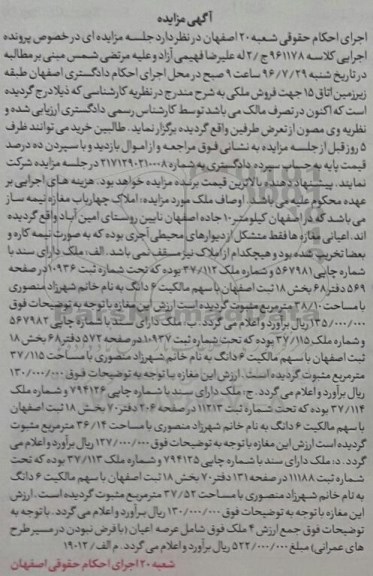 آگهی مزایده
اجرای احکام حقوقی شعبه ۲۰ اصفهان در نظر دارد جلسه مزایده ای در خصوص پرونده
اجرایی کلاسه ۹۶۱۱۷۸ ج/۲ له علیرضا فهیمی آزاد و علیه مرتضی شمس مبنی بر مطالبه
در تاریخ شنبه ۹۶/۷/۲۹ ساعت ۹ صبح در محل اجرای احکام دادگستری اصفهان طبقه
زیرزمین اتاق ۱۵ جهت فروش ملکی به شرح مندرج در نظریه کارشناسی که ذیلا درج گردیده
است که اکنون در تصرف مالک می باشد توسط کارشناس رسمی دادگستری ارزیابی شده و
نظریه وی مصون از تعرض طرفین واقع گردیده برگزار نماید. طالبین خرید می توانند ظرف
۵ روز قبل از جلسه مزایده به نشانی فوق مراجعه و از اموال بازدید و با سپردن ده درصد
قیمت پایه به حساب سپرده دادگستری به شماره ۲۱۷۱۲۹۰۲۱۰۰۰۸ در جلسه مزایده شرکت
نمایند. پیشنهاد دهنده بالاترین قیمت برنده مزایده خواهد بود. هزینه های اجرایی بر
عهده محکوم علیه می باشد. اوصاف ملک مورد مزایده: املاک چهارباب مغازه نیمه ساز
می باشد که در اصفهان کیلومتر ۱۰ جاده اصفهان نایین روستای امین آباد واقع گردیده
اند. اعیانی مغازه ها فقط متشکل از دیوارهای محیطی آجری بوده که به صورت نیمه کاره و
بعضا تخریب شده بود و هیچکدام از املاک نیز مسقف نمی باشد. الف: ملک دارای سند با
شماره چاپی ۵۶۷۹۸۱ و شماره ملک ۳۷/۱۱۲ بوده که تحت شماره ثبت ۱۰۹۳۶ در صفحه
۵۶۹ دفتر ۶۸ بخش ۱۸ ثبت اصفهان با سهم مالکیت ۶ دانگ به نام خانم شهرزاد منصوری
با مساحت ۳۸/۱۰ مترمربع مثبوت گردیده است ارزش این مغازه با توجه به توضیحات فوق
۱۳۵/۰۰۰/۰۰۰ ریال برآورد و اعلام می گردد. ب. ملک دارای سند با شماره چاپی ۵۶۷۹۸۲
و شماره ملک ۳۷/۱۱۵ بوده که تحت شماره ثبت ۱۰۹۳۷ در صفحه ۵۷۲ دفتر ۶۸ بخش ۱۸
ثبت اصفهان با سهم مالکیت ۶ دانگ به نام خانم شهرزاد منصوری با مساحت ۳۷/۱۱۵
مترمربع مثبوت گردیده است. ارزش این مغازه با توجه به توضیحات فوق ۱۳۰/۰۰۰/۰۰۰
ریال برآورد و اعلام می گردد. ج. ملک دارای سند با شماره چاپی ۷۹۴۱۲۶ و شماره ملک
۳۷/۱۱۴ بوده که تحت شماره ثبت ۱۱۲۱۳ در صفحه ۲۰۶ دفتر ۷۰ بخش ۱۸ ثبت اصفهان
با سهم مالکیت ۶ دانگ به نام خانم شهرزاد منصوری با مساحت ۳۶/۱۴ مترمربع مثبوت
گردیده است ارزش این مغازه با توجه به توضیحات فوق ۱۲۷/۰۰۰/۰۰۰ ریال برآورد و اعلام می
گردد. د: ملک دارای سند با شماره چاپی ۷۹۴۱۲۵ و شماره ملک ۳۷/۱۱۳ بوده که تحت
شماره ثبت ۱۱۱۸۸ در صفحه ۱۳۱ دفتر ۷۰ بخش ۱۸ ثبت اصفهان با سهم مالکیت ۶ دانگ
به نام خانم شهرزاد منصوری با مساحت ۳۷/۵۲ مترمربع مثبوت گردیده است. ارزش
این مغازه با توجه به توضیحات فوق ۱۳۰/۰۰۰/۰۰۰ ریال برآورد و اعلام می گردد. با توجه به
توضیحات فوق جمع ارزش ۴ ملک فوق شامل عرصه اعیان (با فرض نبودن در مسیر طرح
های عمرانی) مبلغ ۵۲۲/۰۰۰/۰۰۰ ریال برآورد و اعلام می گردد. م الف/ ۱۹۰۱۲
شعبه ۲۰ اجرای احکام حقوقی اصفهان